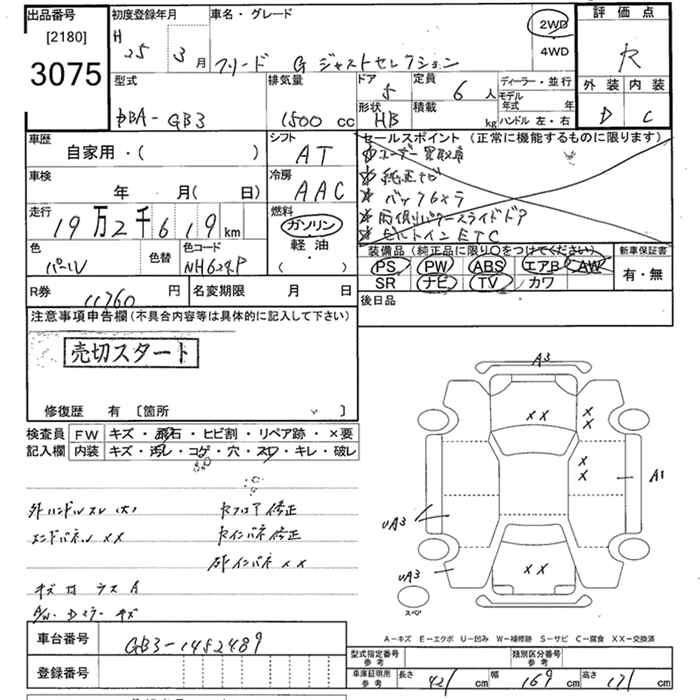 出品番号
[2180]
3075
初度登録年月
H 25 3 月
車名・グレード
フリード G ジャストセレクション
2WD
4WD
評価点
R
外装 内装
D C
型式
DBA-GB3
排気量
1500 cc
ドア
5
定員
6 人
ディーラー・並行
形状
HB
積載
kg
モデル年式 年
ハンドル 左・右
車歴
自家用・( )
シフト
AT
車検
年 月( 日)
冷房
AAC
走行
19万2千619 km
燃料
ガソリン
軽油
( ・ )
色
パール
色替
色コード
NH624P
R券
11760 円
名変期限 月 日
セールスポイント (正常に機能するものに限ります)
☆ 純正ナビ
☆ バックカメラ
☆ 両側パワースライドドア
☆ ビルトインETC
装備品 (純正品に限り○をつけてください)
PS PW ABS エアB AW
SR ナビ TV カワ
新車保証書
有・無
後日品
注意事項申告欄(不具合内容等は具体的に記入して下さい)
売切スタート
修復歴 有 〔箇所 〕
検査員記入欄
FW キズ・飛石・ヒビ割・リペア跡・×要
内装 キズ・汚レ・コゲ・穴・スレ・キレ・破レ
外ハンドルスレ(大)
エンドパネル XX
セフロア修正
セインパネ修正
インパネ XX
キズ
A/W・Dミラーキズ
A3
XX
XX
XX
A1
UA3
UA3
XX
スペア
A-キズ E-エクボ U-凹み W-補修跡 S-サビ C-腐食 XX-交換済
車台番号
GB3-1452489
登録番号
型式指定番号
参考
類別区分番号
参考
車庫証明用
参考
長さ 421 cm
幅 169 cm
高さ 171 cm